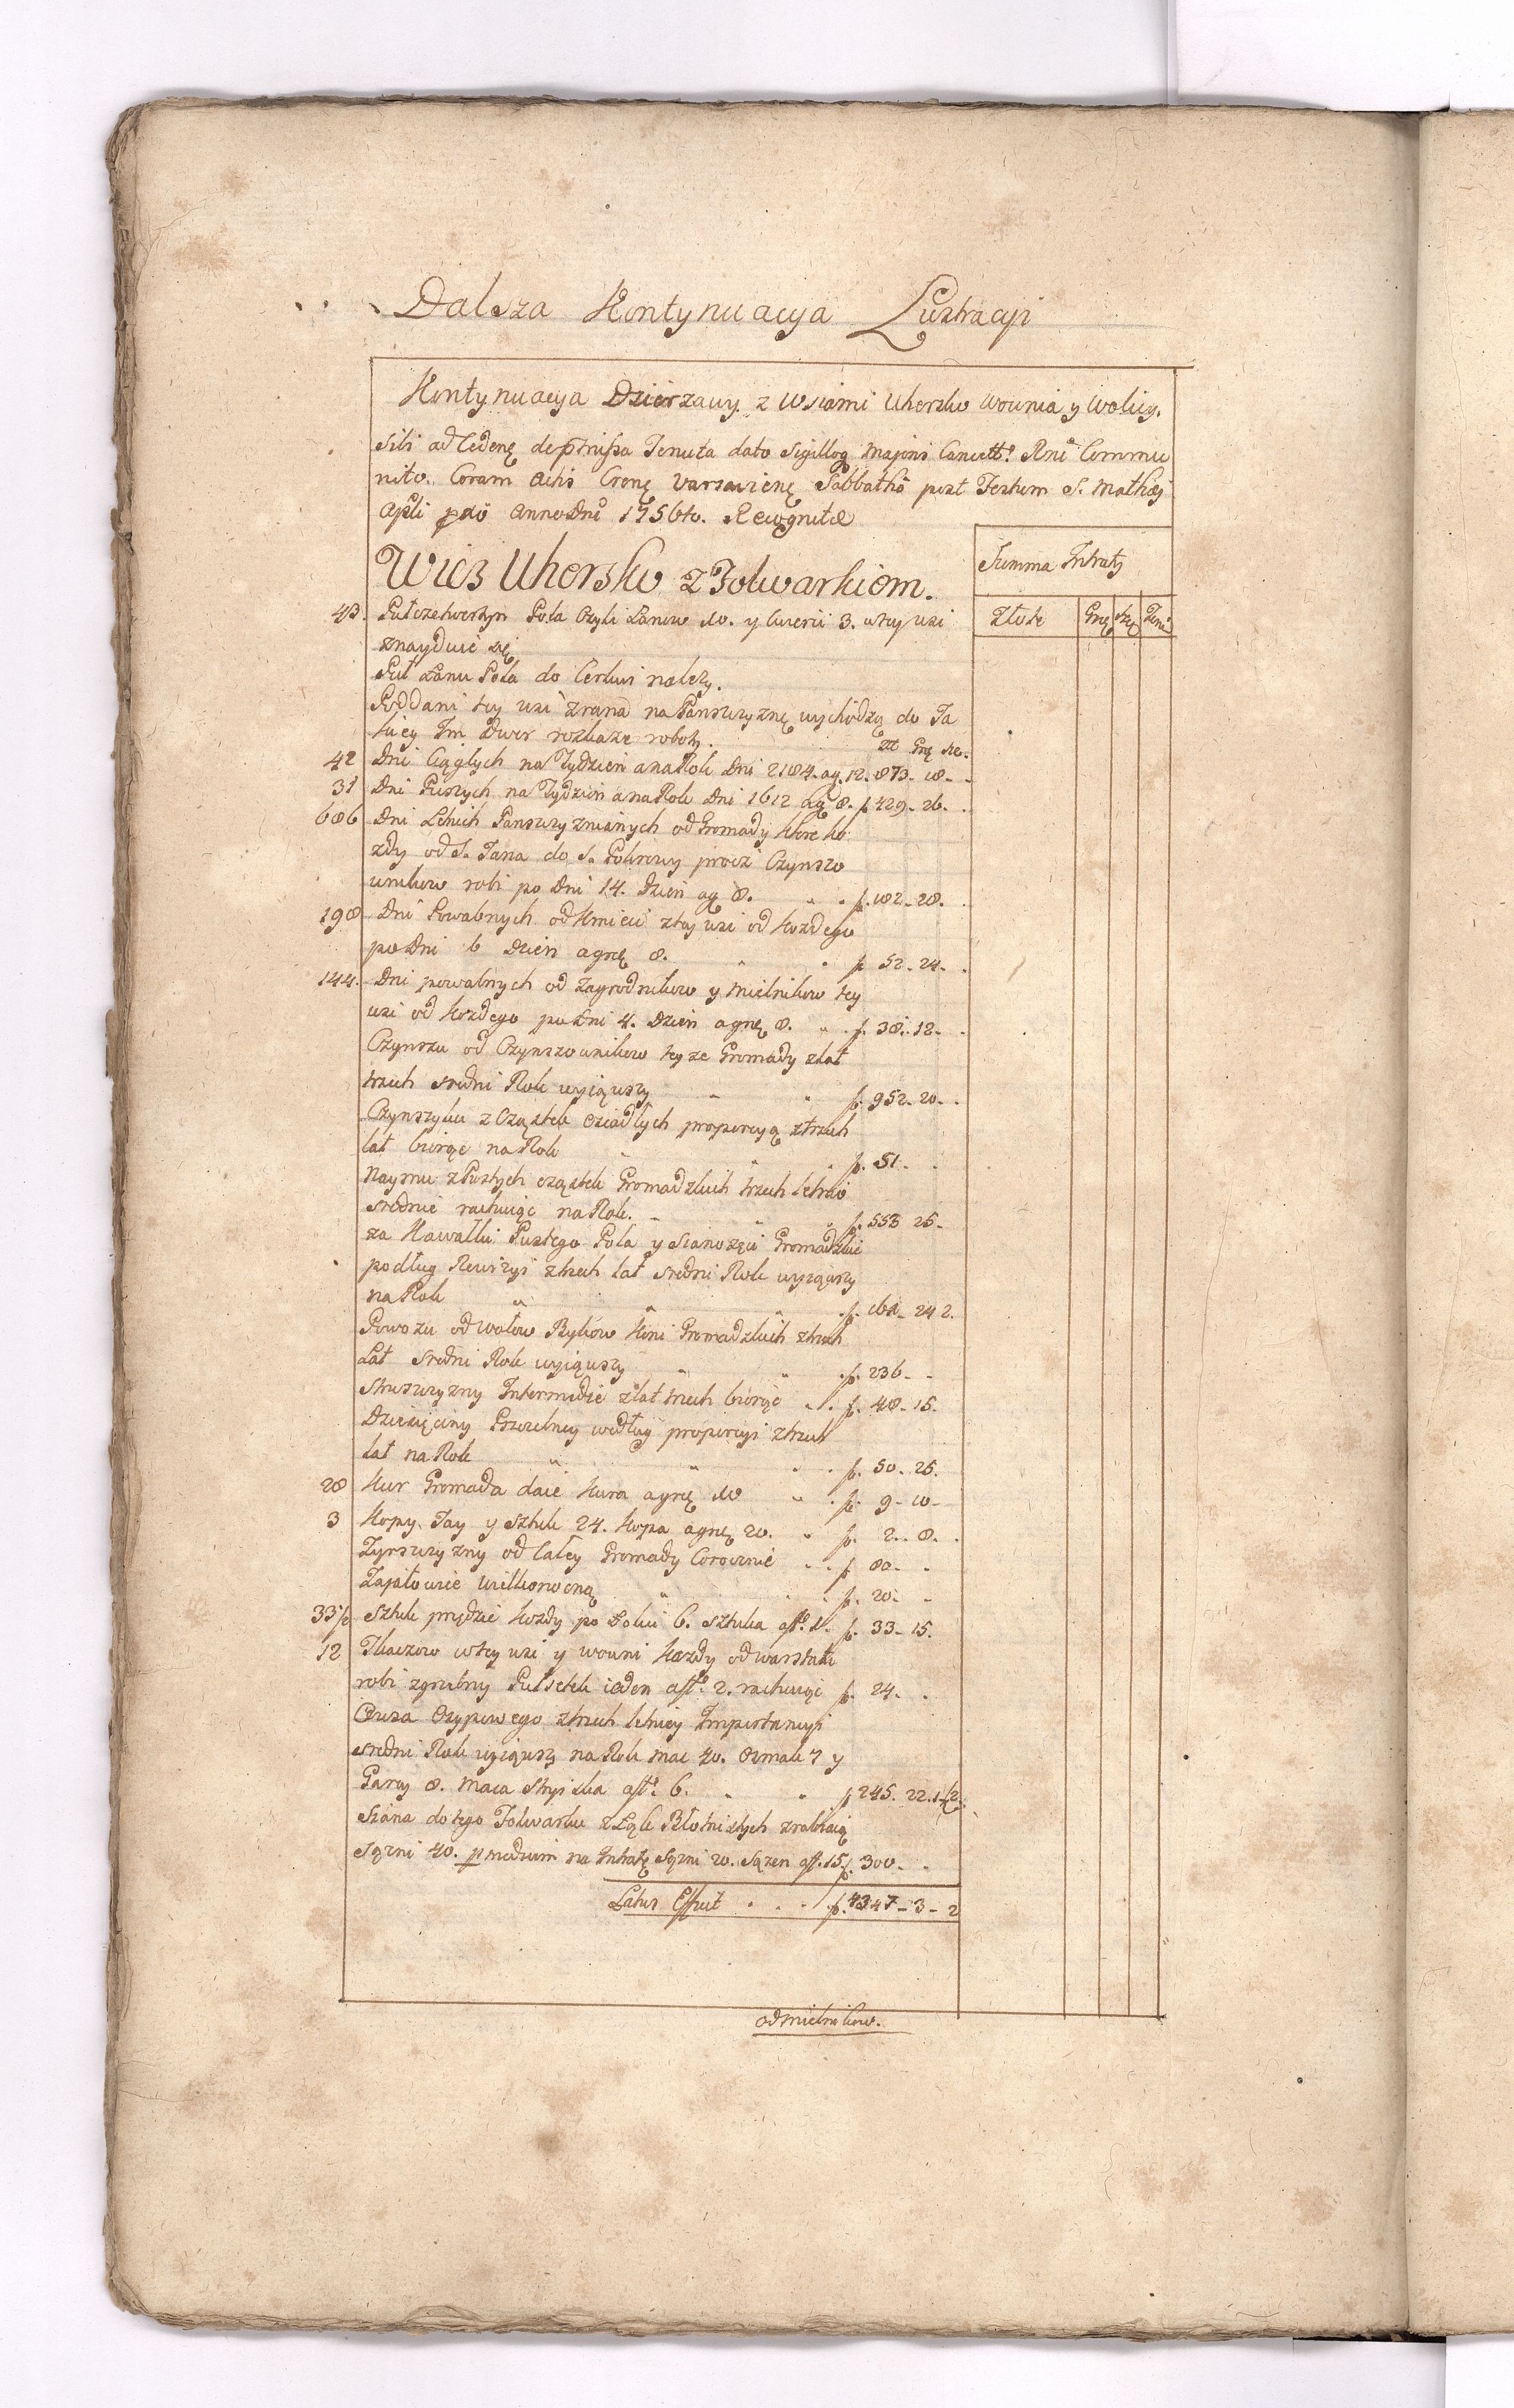 Dalsza Kontynuacya Lustracyi
Kontynuacya Dzierzawy z Wsiami Uhersko Wownia y Wolicy.
sibi ad Cedenę depmissa Tenuta dato Sigilloq Majoris Cancell: Rni Commu
nito. Coram Actis Cronę Varsavienę Sabbatho post Festum S. Mathæj
Apli pxo Anno Dni 1756to. Recognitæ
Summa Intraty
Wies Uhersko z Folwarkiem.
Złote Grę Sze Feni
43. Pułczetwertyn Pola Czyli Łanow 10. y Cwerci 3. w tey wsi
znayduie się
Puł Łanu Pola do Cerkwi należy.
Poddani tey wsi z rana na Panszczyznę wychodzą do Ta
kiey Im Dwor rozkaze roboty. zł Grę sze.
42 Dni Ciągłych na Tydzien a na Rok Dni 2184. ag. 12. 873. 18. -
31 Dni Pieszych na Tydzien a na Rok Dni 1612 ag 8. f 429. 26. .
686 Dni Letnich Panszczyznianych od Gromady ktore ko
zdy od S. Jana do S. Pokrowy procz Czynszo
wnikow robi po Dni 14. Dzien ag 8. f. 182. 28.
198 Dni Powabnych od Kmieci z tey wsi od kozdego
po Dni 6 Dzien agrę 8. f 52. 24. .
144. Dni powabnych od Zagrodnikow y Mielnikow tey
wsi od kozdego po Dni 4. Dzien agrę 8. f. 38. 12. .
Czynszu od Czynszownikow teyze Gromady z lat
trzech sredni Rok wyiąwszy f. 952. 20. .
Czynszyku z Cząstek osiadłych proporcyą z trzech
lat biorąc na Rok f. 51. .
Naymu z Pustych cząstek Gromadzkich trzech letnio
srednie rachuiąc na Rok. f. 553 25.
za Kawałki Pustego Pola y Sianozęci Gromadzkie
podług Rewizyi z trzech lat sredni Rok wyiąwszy
na Rok f. 24 2.
Powozu od Wołow Bykow Koni Gromadzkich z trzech
Lat sredni Rok wyiąwszy f. 236. .
Stuszczyzny Intermedie z lat trzech biorąc f. 48. 15.
Dziesięciny Pszczelney według proporcyi z trzech
lat na Rok f. 50. 25.
28 Kur Gromada daie Kura agrę 10 f. 9. 10
3 Kopy Jay y sztuk 24. Kopa agrę 20. f. 2. 8.
Zyrszczyzny od Całey Gromady Corocznie f 80. .
Zajałowice Wielkonocną f. 20. .
33½ Sztuk przędzie kozdy po Łokci 6. Sztuka aff. 1. f. 33. 15.
12 Tkaczow w tey wsi y Wowni kazdy od warsztatu
robi zgrebny Pułsetek ieden aff. 2. rachuiąc f. 24. .
Owsa Osypowego z trzech letniey Importancyi
sredni Rok wyiąwszy na Rok Mac 40. Osmak 7 y
Garcy 8. Maca Stryiska aff. 6. f 245. 22. 1½.
Siana do tego Folwarku z Łąk Błotnistych zrabiaią
Sązni 40. p medium na Intratę Sązni 20. Sązen aff. 15. f. 300. .
Latus Effecit f. 4347. 3. 2
od Mielnikow.